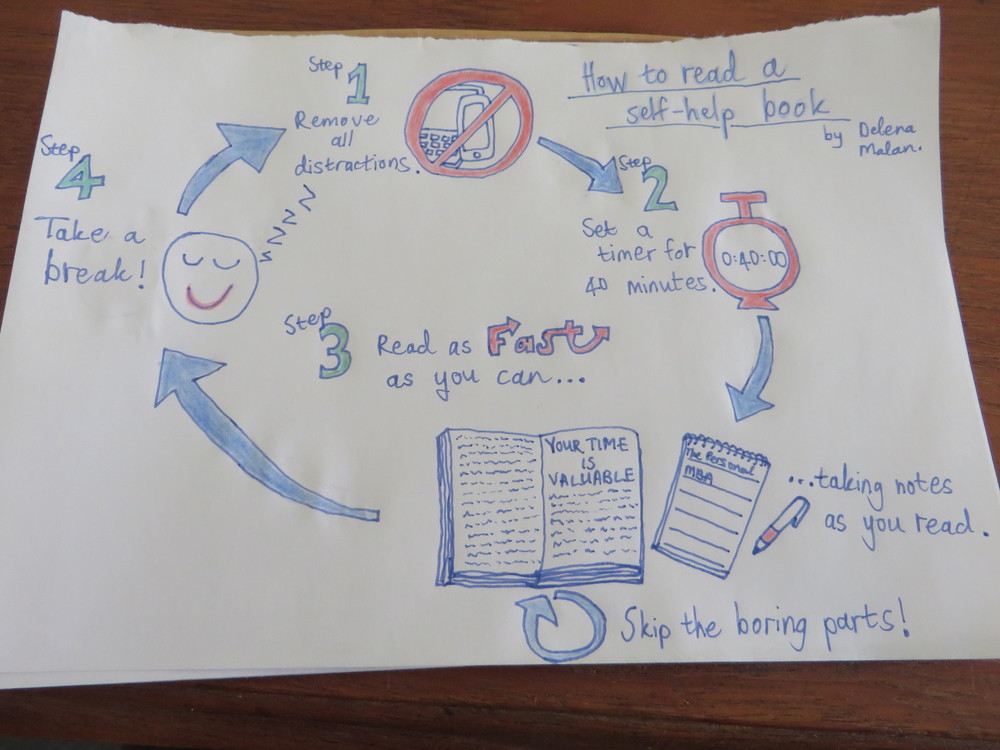 How to read a
self-help book
by Delena
Malan.
Step 1
Remove
all
distractions.
Step 2
Set a
timer for
40 minutes.
0:40:00
Step 3
Read as Fast
as you can...
YOUR TIME
IS
VALUABLE
The Personal
MBA
...taking notes
as you read.
Skip the boring parts!
Step 4
Take a
break!
zzzzz